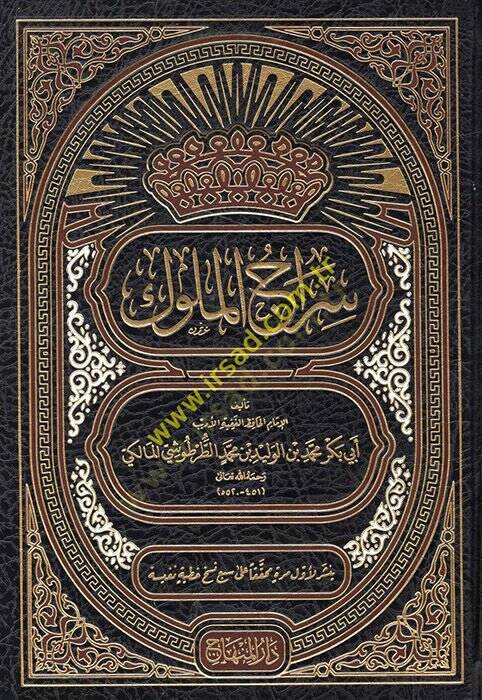 سراج الملوك
تأليف
الإمام الحافظ الفقيه الأديب
أبي بكر محمد بن الوليد بن محمد الطرطوشي المالكي
رحمه الله تعالى
(٤٥١-٥٢٠ه)
ينشر لأول مرة محققا على سبع نسخ خطية نفيسة
دار المنهاج
www.irsad.com.tr